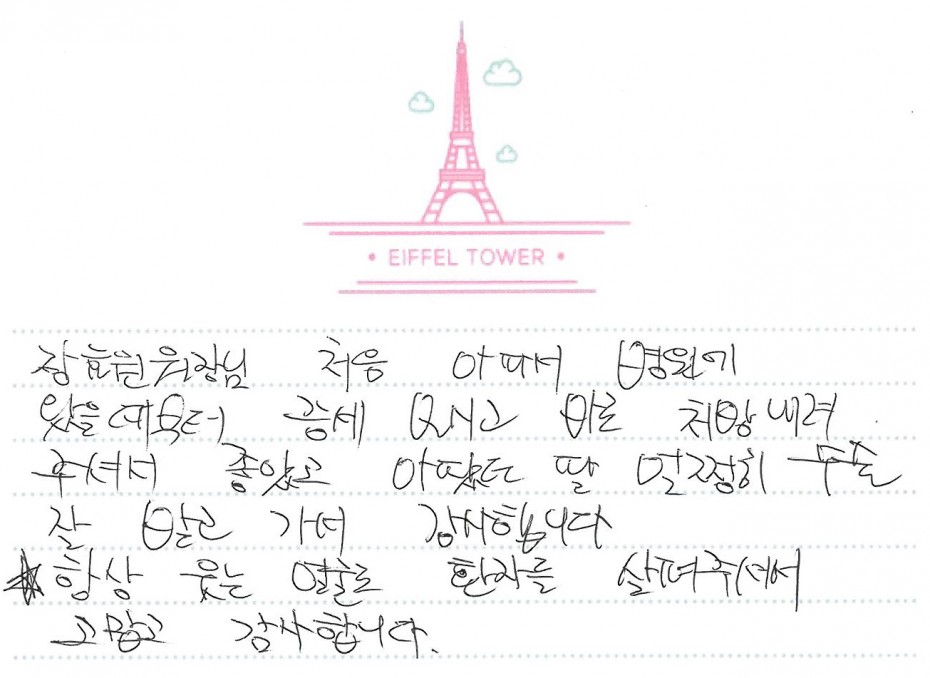 • EIFFEL TOWER •
장효원 원장님 처음 아파서 병원에
왔을때부터 증세 보시고 바로 처방내려
주셔서 좋았고 아팠던 딸 얼정히 수술
잘 받고 가며 감사합니다
☆항상 웃는 얼굴로 환자를 살펴주셔서
고맙고 감사합니다.